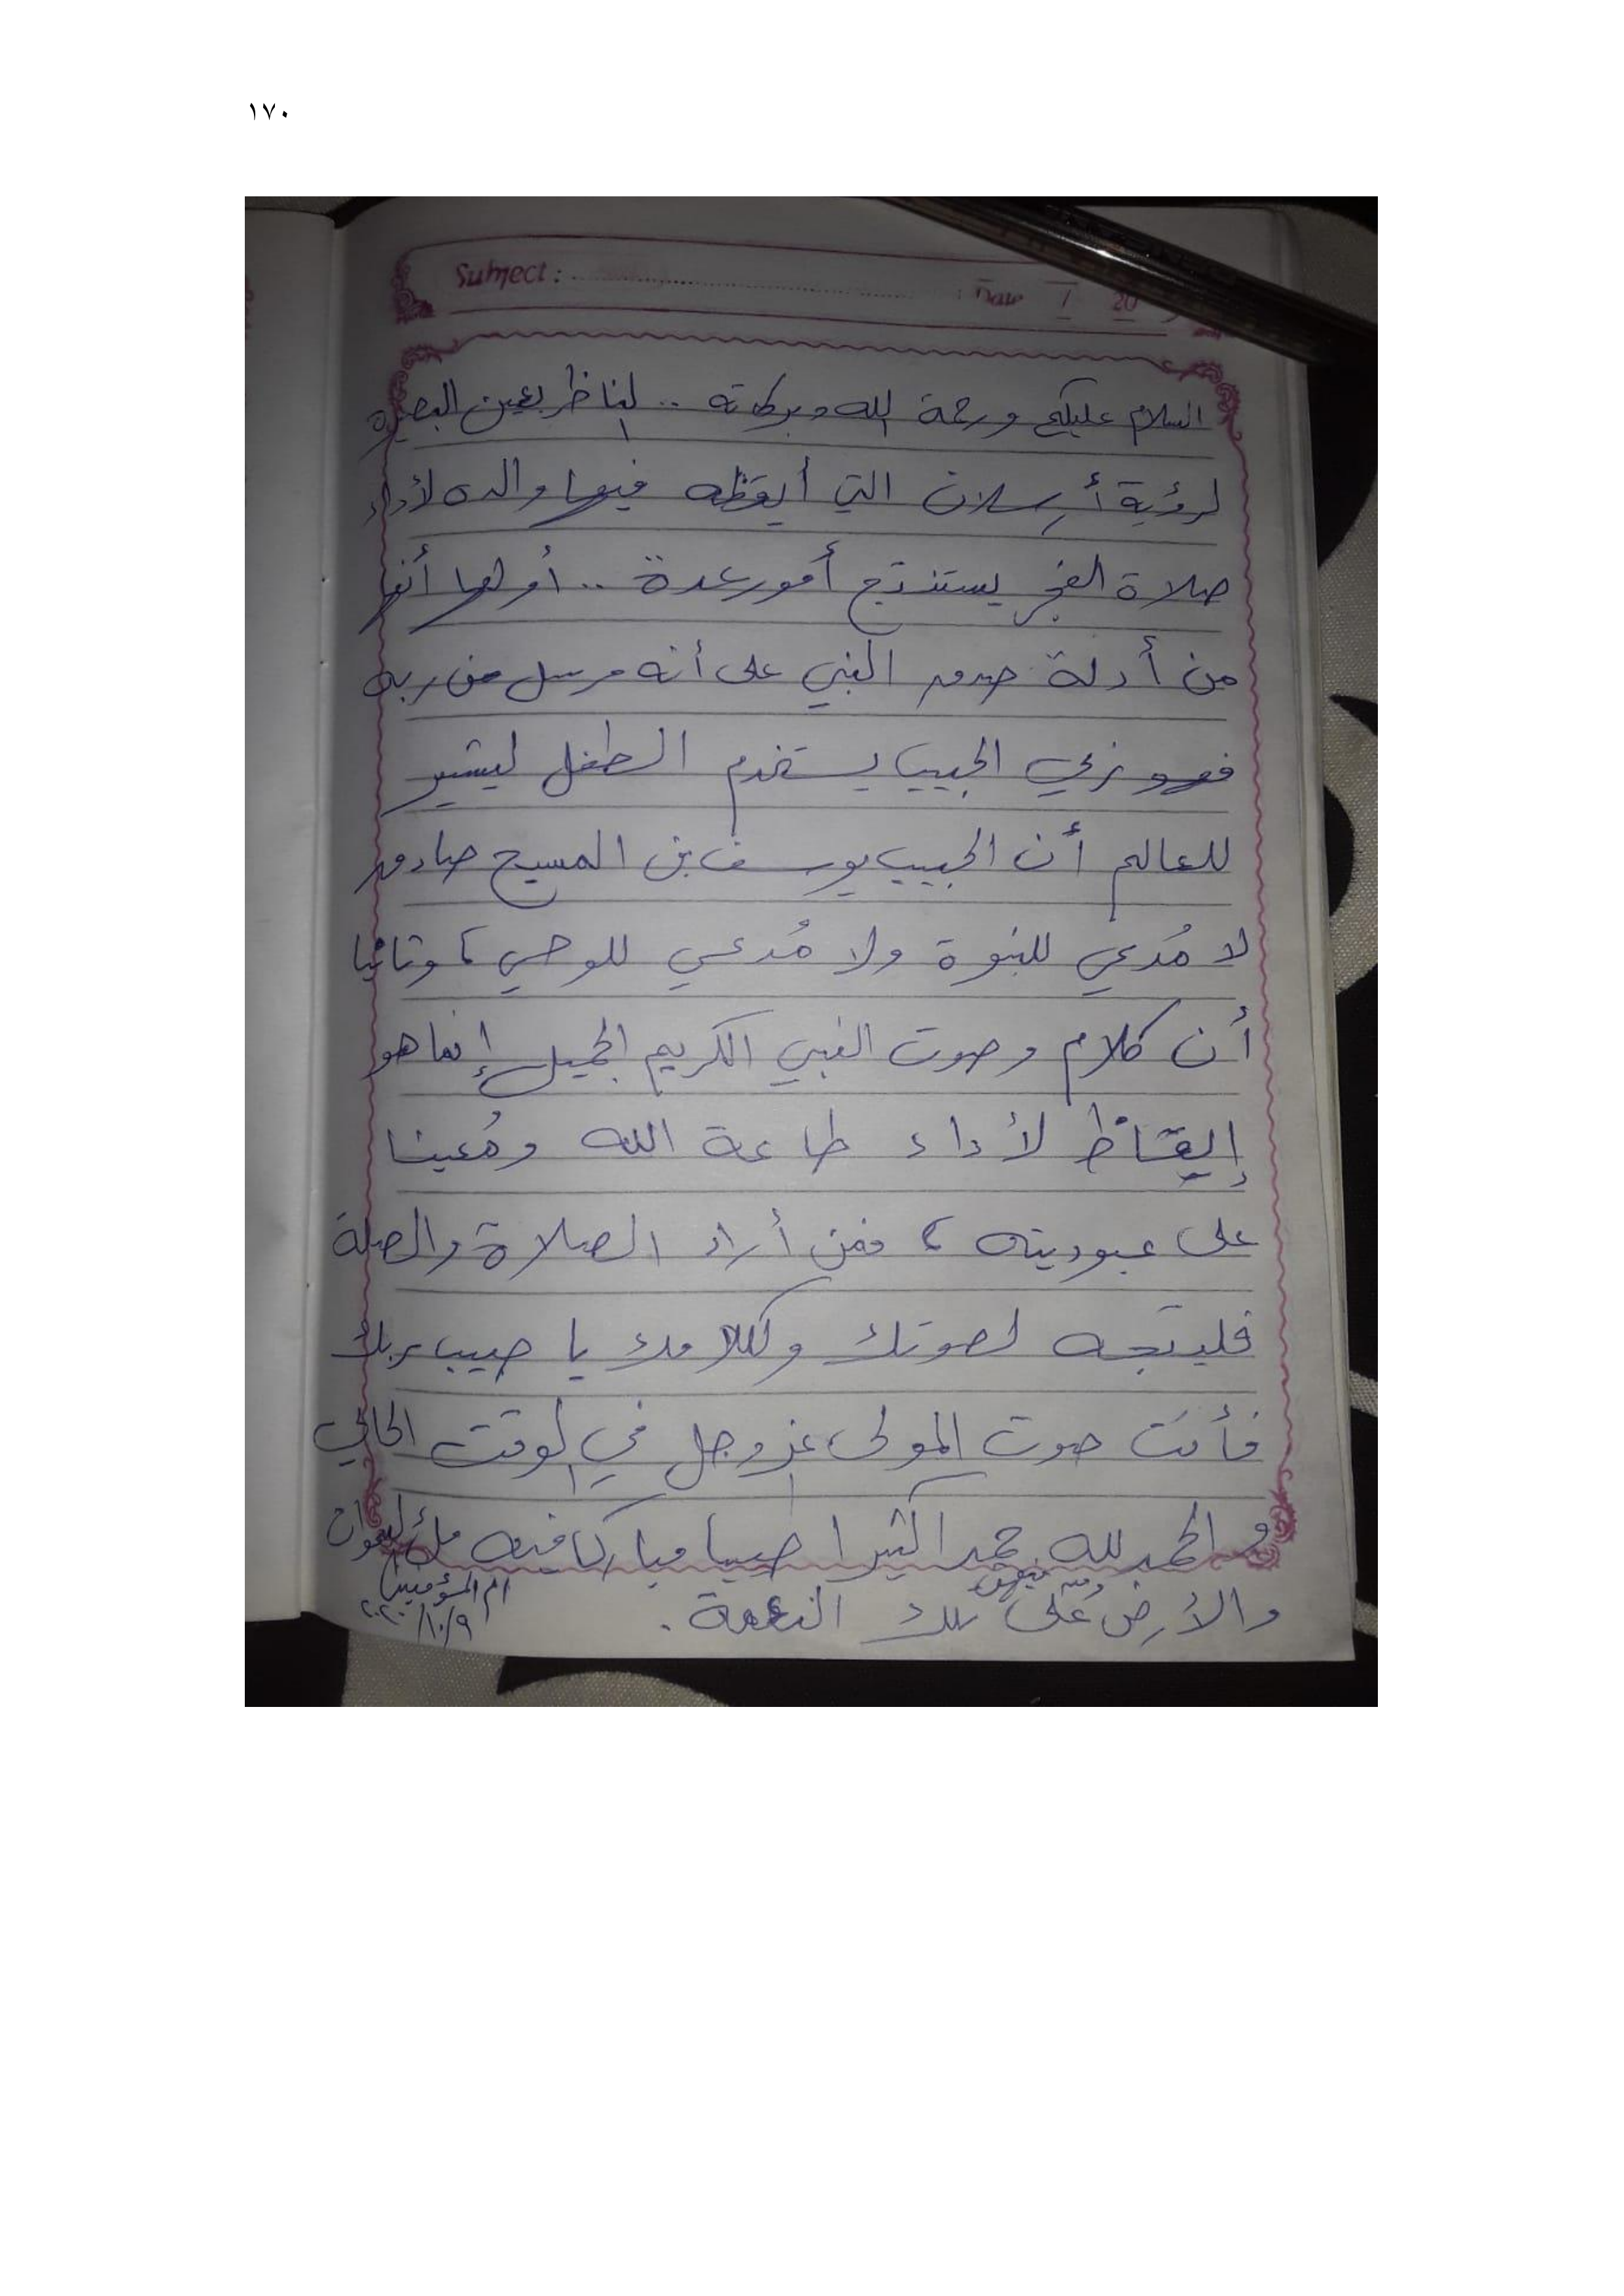 ١٧٠
Subject : Date / 20
السلام عليكم ورحمة الله وبركاته .. الناظر بعين البصيرة
لرؤية أرسلان التي أيقظه فيها والده لأداء
صلاة الفجر يستنتج أمور عدة .. أولها أنها
من أدلة صدق النبي على أنه مرسل من ربه
فهو الحبيب يستخدم الطفل ليشير
للعالم أن الحبيب يوسف بن المسيح صادق
لا مُدعي للنبوة ولا مُدعي للوحي ، وثانيا
أن كلام وصوت النبي الكريم الجميل إنما هو
إيقاظ لأداء طاعة الله ومُعينا
على عبوديته ، فمن أراد الصلاة والصلة
فليتجه لصوتك ولكلامك يا حبيب ربك
فأنت صوت المولى عز وجل في الوقت الحالي
و الحمد لله حمدا كثيرا طيبا مباركا فيه ملئ السموات
والأرض على تلك النعمة .
ام المؤمنين
٢٠٢٠/١٠/٩